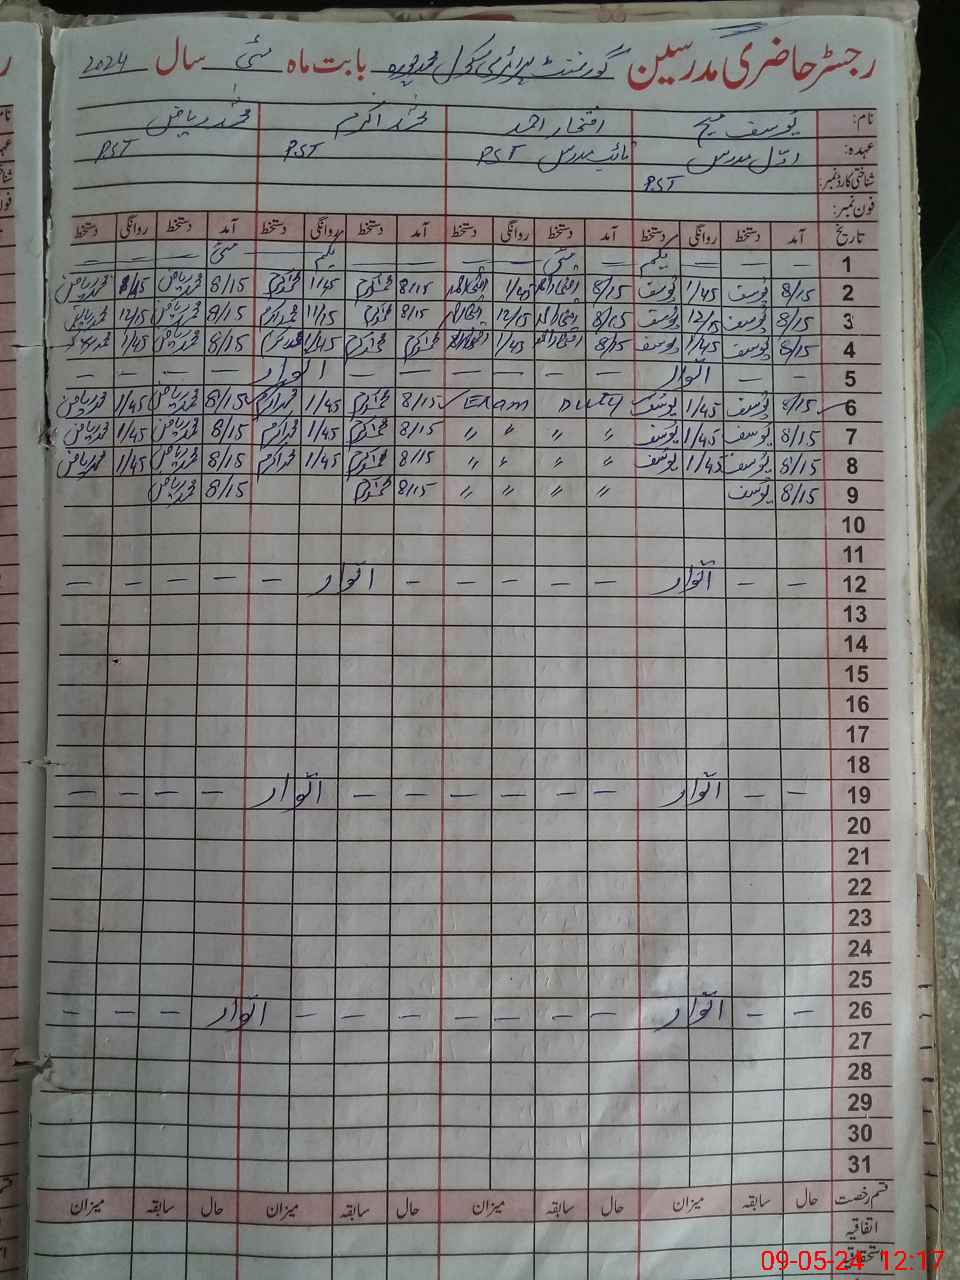 رجسٹر حاضری مدرسین گورنمنٹ پرائمری سکول بابت ماہ مئی سال 2024
نام: یوسف مسیح افتخار احمد محمد اکرم محمد ریاض
عہدہ: اول مدرس نائب مدرس PST PST PST
شناختی کارڈ نمبر: PST
فون نمبر:
تاریخ آمد دستخط روانگی دستخط آمد دستخط روانگی دستخط آمد دستخط روانگی دستخط آمد دستخط روانگی دستخط
1 — — — یکم — مئی — — یکم — مئی — —
2 8/15 یوسف 1/45 یوسف 8/15 افتخار احمد 1/45 افتخار احمد 8/15 محمد اکرم 11/45 محمد اکرم 8/15 محمد ریاض 8/45 محمد ریاض
3 8/15 یوسف 12/15 یوسف 8/15 افتخار احمد 12/15 8/15 محمد اکرم 11/15 محمد اکرم 8/15 محمد ریاض 12/15 محمد ریاض
4 8/15 یوسف 1/45 یوسف 8/15 افتخار احمد 1/45 افتخار احمد محمد اکرم محمد اکرم 1/45 8/15 محمد ریاض 1/45 محمد ریاض
5 — — اتوار — — اتوار — — — —
6 8/15 یوسف 1/45 یوسف Duty Exam 8/15 محمد اکرم 1/45 محمد اکرم 8/15 محمد ریاض 1/45 محمد ریاض
7 8/15 یوسف 1/45 یوسف 〃 〃 〃 〃 8/15 محمد اکرم 1/45 محمد اکرم 8/15 محمد ریاض 1/45 محمد ریاض
8 8/15 یوسف 1/45 یوسف 〃 〃 〃 〃 8/15 محمد اکرم 1/45 محمد اکرم 8/15 محمد ریاض 1/45 محمد ریاض
9 8/15 یوسف 〃 〃 〃 〃 8/15 محمد اکرم 8/15 محمد ریاض
10
11
12 — — اتوار — — — — — اتوار — — — — —
13
14
15
16
17
18
19 — — اتوار — — — — — — اتوار — — — —
20
21
22
23
24
25
26 — — اتوار — — — — — — — اتوار — — —
27
28
29
30
31
قسم رخصت حال سابقہ میزان حال سابقہ میزان حال سابقہ میزان حال سابقہ میزان
اتفاقیہ
استحقاقی
09-05-24 12:17